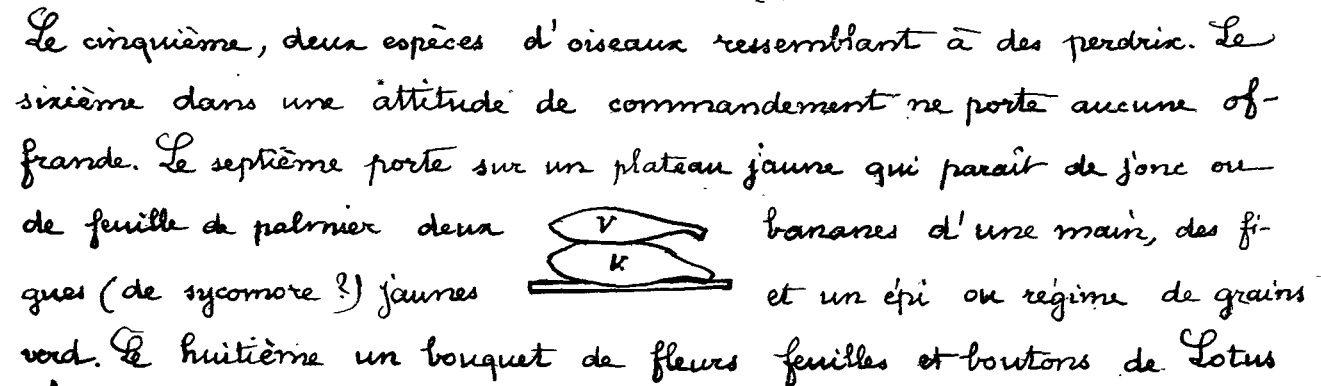 Le cinquième, deux espèces d'oiseaux ressemblant à des perdrix. Le
sixième dans une attitude de commandement ne porte aucune of-
frande. Le septième porte sur un plateau jaune qui parait de jonc ou
de feuille de palmier deux V bananes d'une main, des fi-
K
gues (de sycomore ?) jaunes et un épi ou régime de grains
verd. Le huitième un bouquet de fleurs feuilles et boutons de Lotus